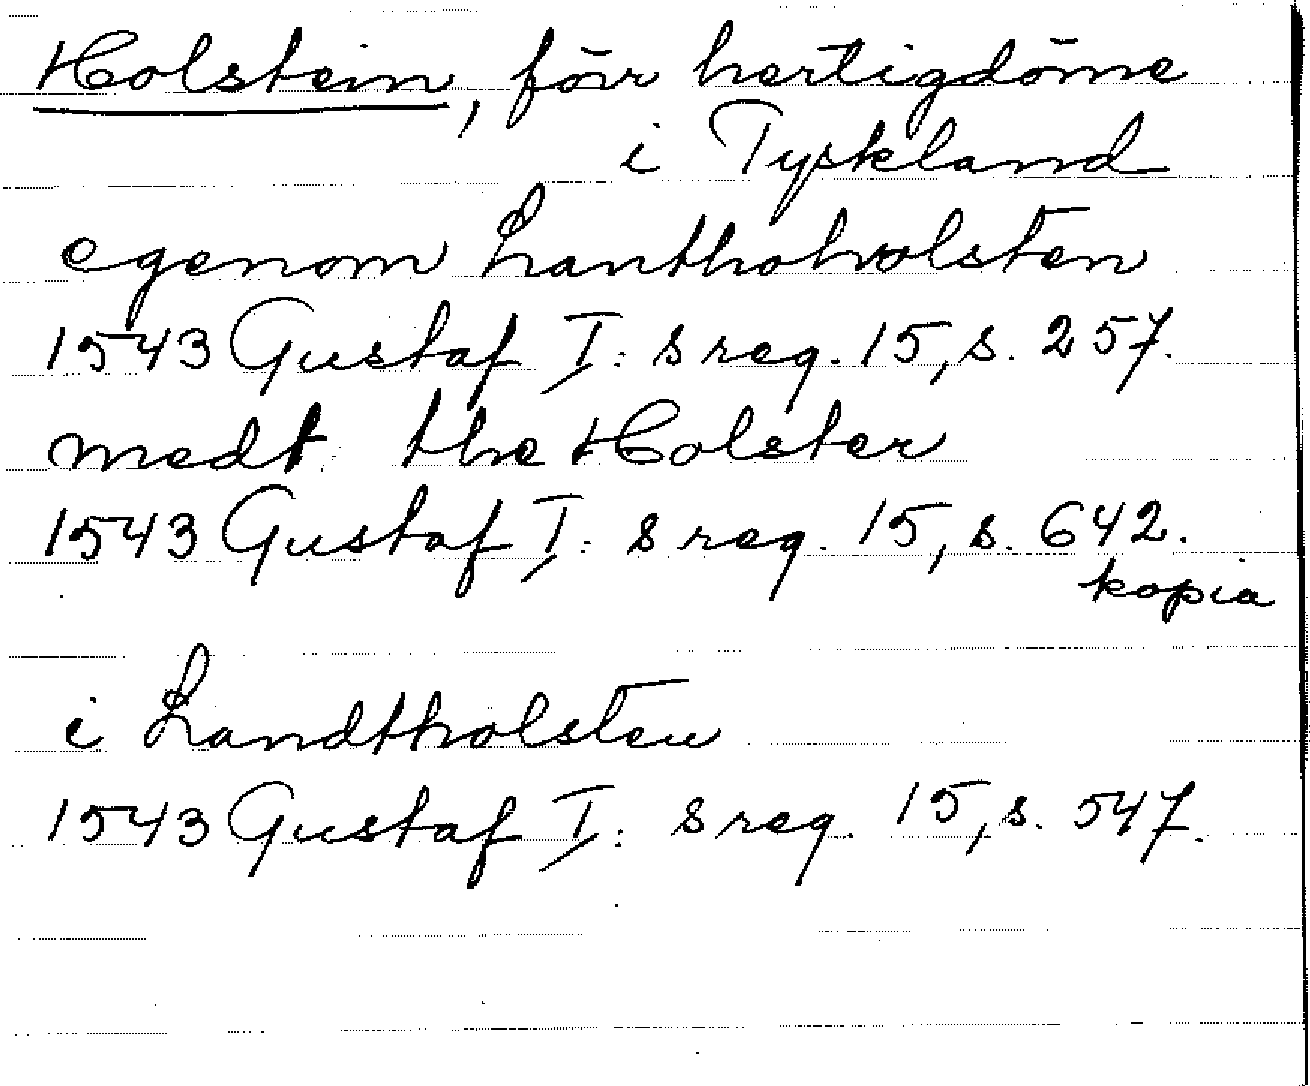 Holstein, förr hertigdöme
i Tyskland
egenom Lantthoholsten
1543 Gustaf I:s reg. 15, s. 257.
medt the Holster
1543 Gustaf I:s reg. 15, s. 642.
kopia
i Landtholsten
1543 Gustaf I:s reg. 15, s. 547.